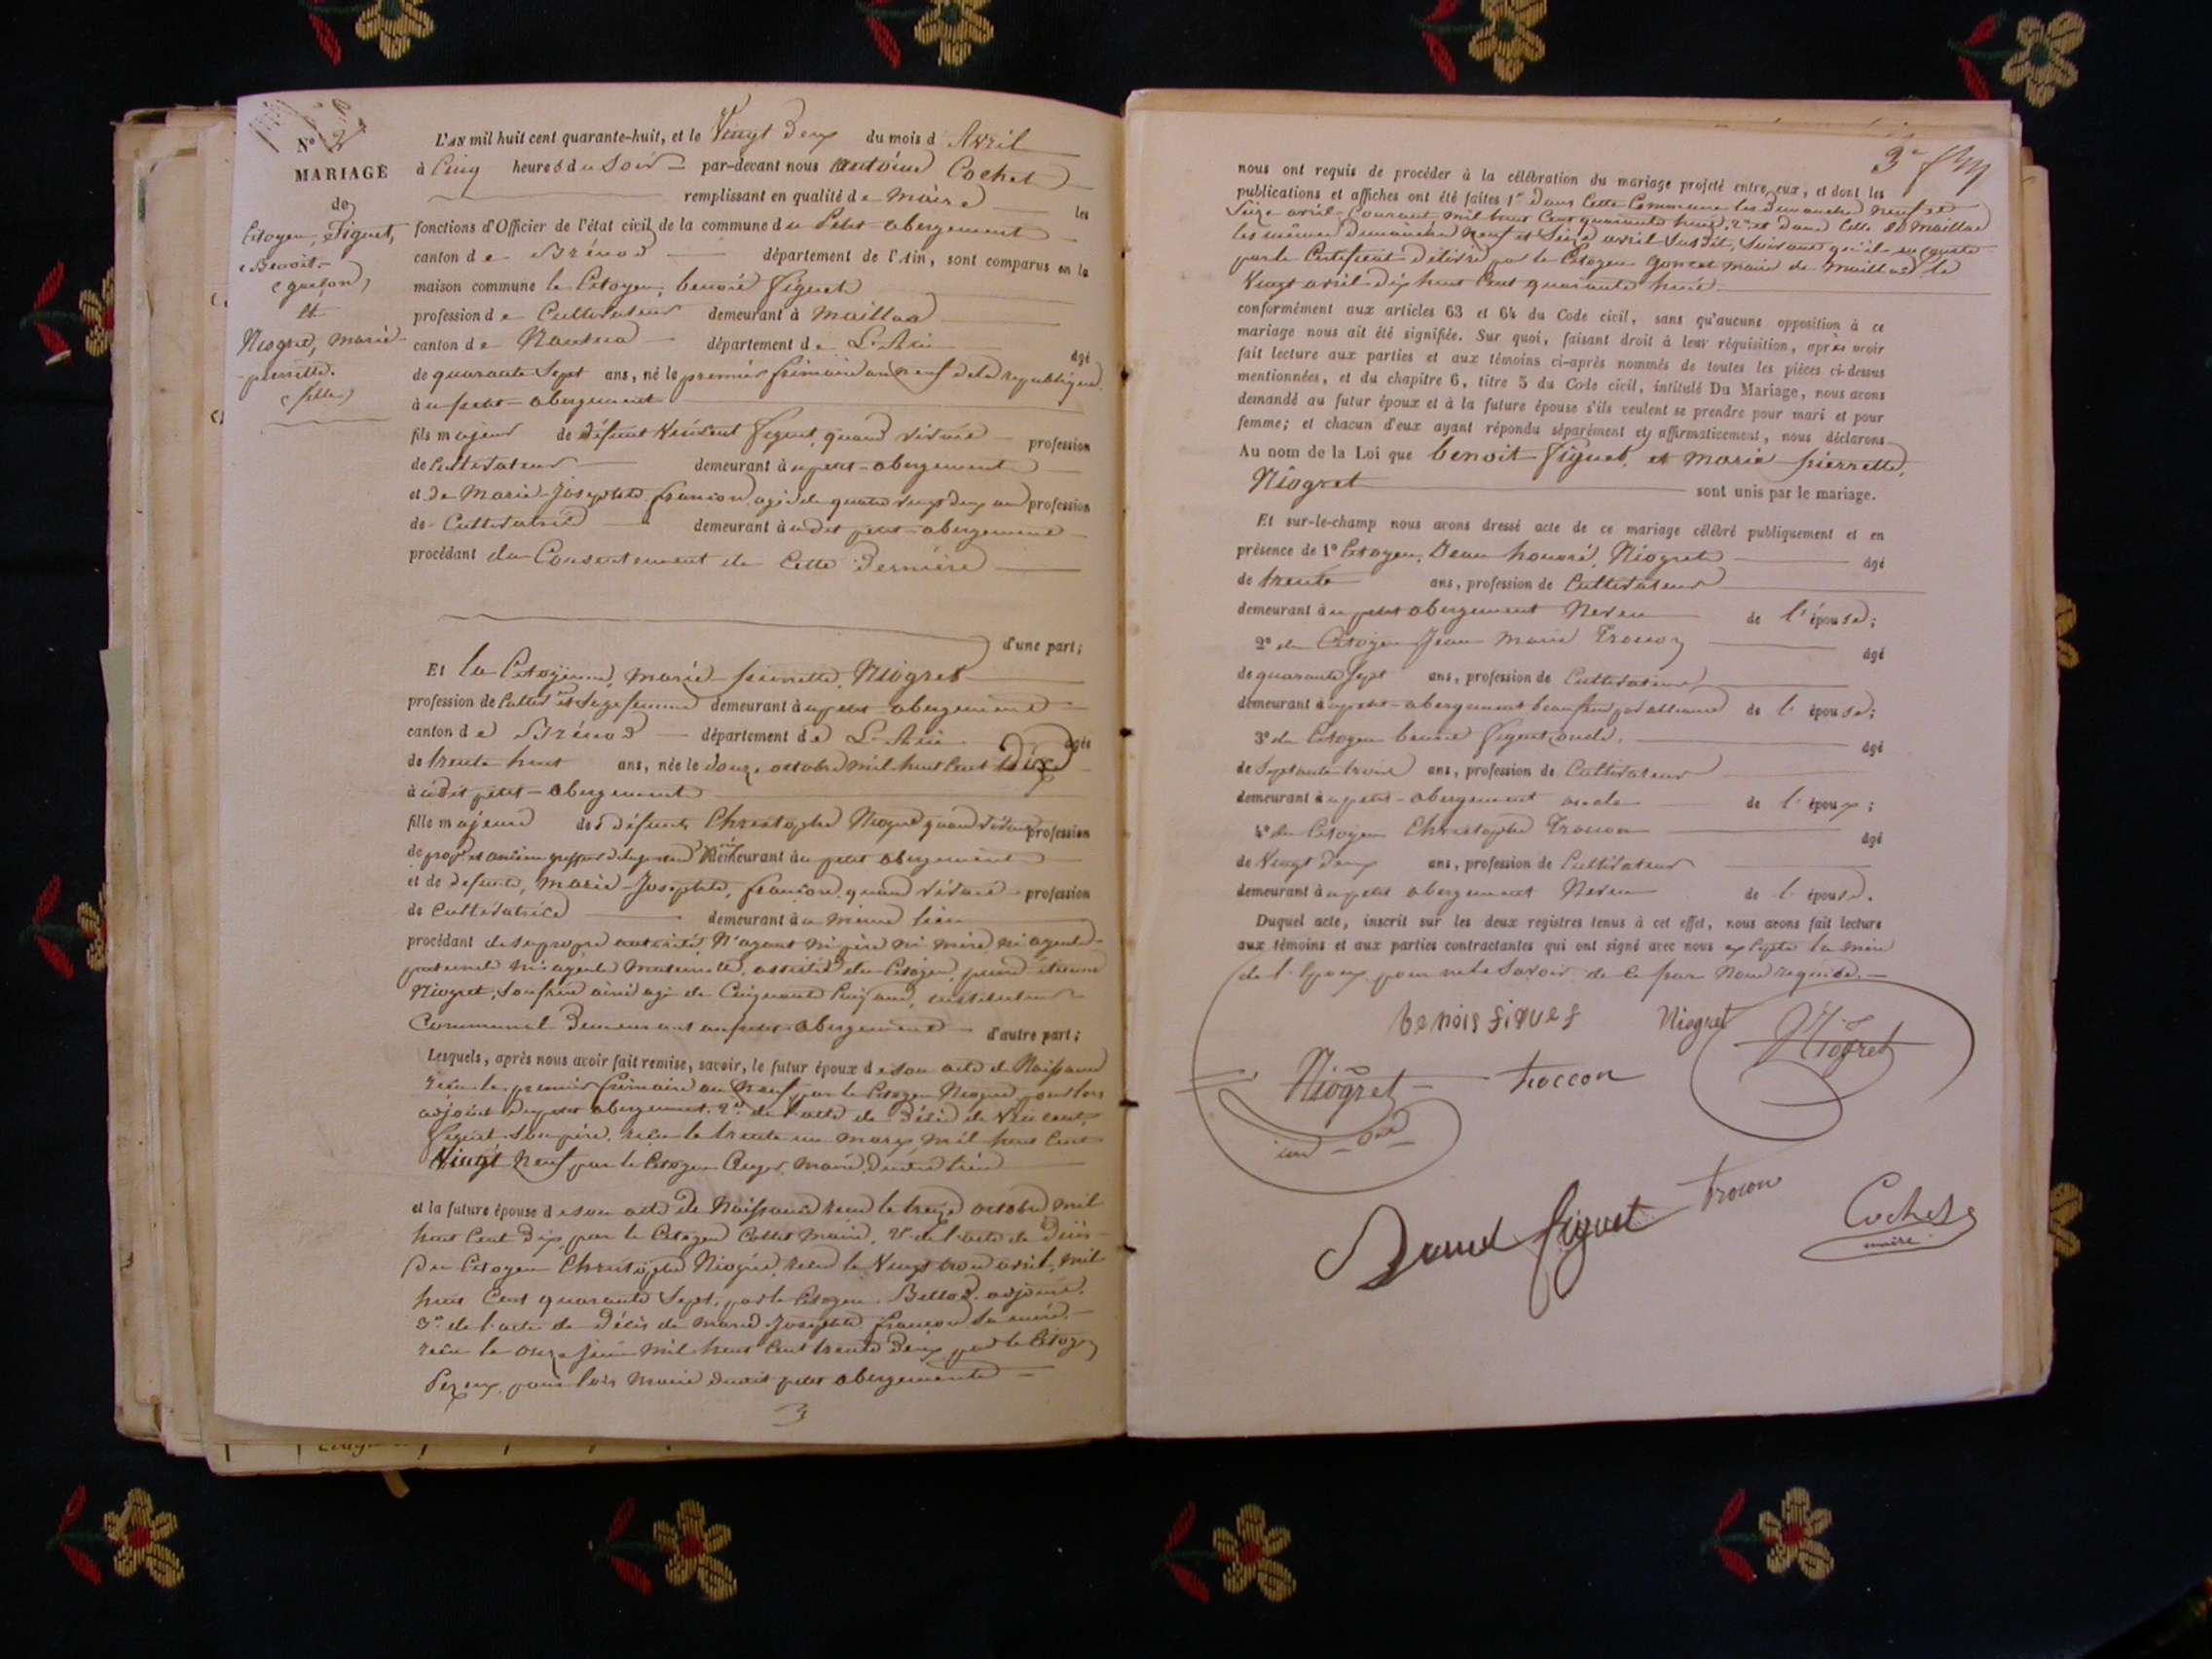 N° 2
MARIAGE
de
Citoyen, Figuet,
Benoit
(garçon)
et
Niogret, marie
pierrette.
(fille)
L'AN mil huit cent quarante-huit, et le Vingt deux du mois d'Avril
à Cinq heures du Soir par-devant nous antoine Cochet
remplissant en qualité de Maire les
fonctions d'Officier de l'état civil de la commune du Petit abergement
canton de Brénod département de l'Ain, sont comparus en la
maison commune le Citoyen, benoit figuet
profession de Cultivateur demeurant à Maillat
canton de Nantua département de L'Ain âgé
de quarante Sept ans, né le premier frimaire an neuf de la republique.
à u petit-abergement
fils majeur de défunt Vincent figuet, quand vivait profession
de Cultivateur demeurant à u petit-abergement
et de Marie-Josephte françon agée de quatre vingt deux ans profession
de Cultivatrice demeurant à udit petit-abergement
procédant du Consentement de Cette Dernière
d'une part;
Et la Citoyenne, marie-pierrette, Niogret
profession de Cultivce et Sage femme demeurant à u petit-abergement
canton de Brénod département de L'Ain âgée
de trente huit ans, née le douze octobre mil huit Cent Dix
à udit petit-abergement
fille majeure de défunt Christophe Niogret quand vivait profession
de propre et ancien greffier demeurant à u petit abergement
et de defunte, Marie-Josephte, françon, quand vivait profession
de Cultivatrice demeurant à u même lieu
procédant de sa propre autorité N'ayant ni père ni mère, ni ayeuls
paternels ni ayeuls maternels, assistée du Citoyen, pierre étienne
Niogret, Son frère ainé agé de Cinquante Cinq ans, instituteur
Communal Demeurant au petit-abergement d'autre part;
Lesquels, après nous avoir fait remise, savoir, le futur époux de son acte de Naissance
reçu le premier frimaire an Neuf, par le Citoyen Niogret pour lors
adjoint du petit abergement. 2° de l'acte de Décès de Vincent
figuet Son père, reçu le trente un mars, mil huit Cent
Vingt Neuf par le Citoyen Auger, Maire, dudit lieu
et la future épouse de son acte de Naissance reçu le treize octobre mil
huit Cent Dix, par le Citoyen Collet Maire, 2° de l'acte de Décès
Du Citoyen Christophe Niogret, reçu le Vingt trois avril, mil
huit Cent quarante Sept, par le Citoyen Belloz, adjoint.
3° de l'acte de Décès de Marie-Josephte françon Sa mère,
reçu le onze juin mil huit Cent trente Deux, par le Citoyen
pour lors Maire dudit petit abergement
3
3e
nous ont requis de procéder à la célébration du mariage projeté entre eux, et dont les
publications et affiches ont été faites 1° Dans Cette Commune les Dimanches neuf et
Seize avril Courant mil huit Cent quarante huit, 2° et dans Celle de Maillat
les mêmes Dimanches Neuf et Seize avril Susdit, Suivant qu'il en conste
par le Certificat Délivré par le Citoyen Goncet maire de Maillat le
Vingt avril dix huit Cent quarante huit
conformément aux articles 63 et 64 du Code civil, sans qu'aucune opposition à ce
mariage nous ait été signifiée. Sur quoi, faisant droit à leur réquisition, après avoir
fait lecture aux parties et aux témoins ci-après nommés de toutes les pièces ci-dessus
mentionnées, et du chapitre 6, titre 5 du Code civil, intitulé Du Mariage, nous avons
demandé au futur époux et à la future épouse s'ils veulent se prendre pour mari et pour
femme; et chacun d'eux ayant répondu séparément et affirmativement, nous déclarons
Au nom de la Loi que benoit figuet, et marie pierrette,
Niogret sont unis par le mariage.
Et sur-le-champ nous avons dressé acte de ce mariage célébré publiquement et en
présence de 1° Citoyen, Jean honoré, Niogret âgé
de trente ans, profession de Cultivateur
demeurant à u petit abergement Neveu de l'épouse;
2° du Citoyen Jean Marie Trocon âgé
de quarante Sept ans, profession de Cultivateur
demeurant à u petit-abergement beau frère par alliance de l'épouse;
3° du Citoyen benoit figuet, oncle. âgé
de Septante trois ans, profession de Cultivateur
demeurant à u petit-abergement oncle de l'époux;
4° du Citoyen Christophe Trocon âgé
de Vingt Deux ans, profession de Cultivateur
demeurant à u petit abergement Neveu de l'épouse.
Duquel acte, inscrit sur les deux registres tenus à cet effet, nous avons fait lecture
aux témoins et aux parties contractantes qui ont signé avec nous excepté la mère
de l'époux, pour ne le Savoir de ce par Nous requise.
benois figuet Niogret Niogret
Niogret troccon
figuet trocon Cochet
maire